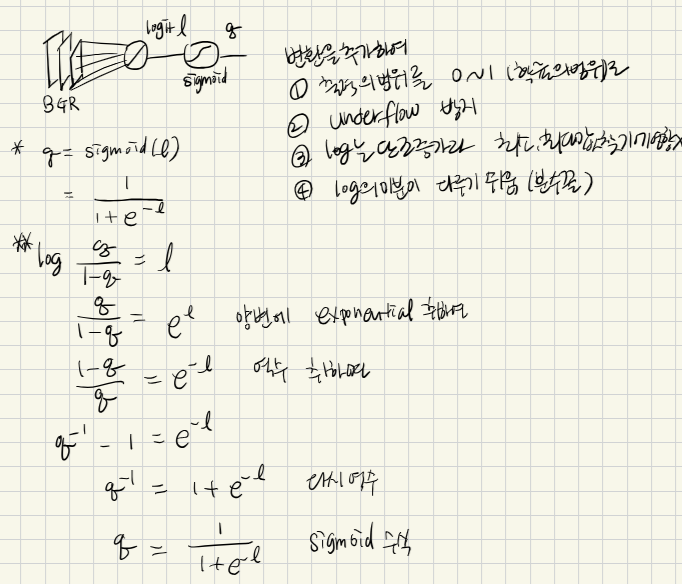 logit l q
sigmoid
BGR
변환을 추가하여
① 출력의 범위를 0~1 (확률의 범위)로
② underflow 방지
③ log는 단조증가라 최소, 최대값 찾기 영향x
④ log의 미분이 다루기 쉬움 (분수꼴)
* q = sigmoid(l)
= 1 / (1 + e^-l)
** log q / (1-q) = l
q / (1-q) = e^l 양변에 exponential 취하여
(1-q) / q = e^-l 역수 취하면
q^-1 - 1 = e^-l
q^-1 = 1 + e^-l 다시 역수
q = 1 / (1 + e^-l) sigmoid 수식